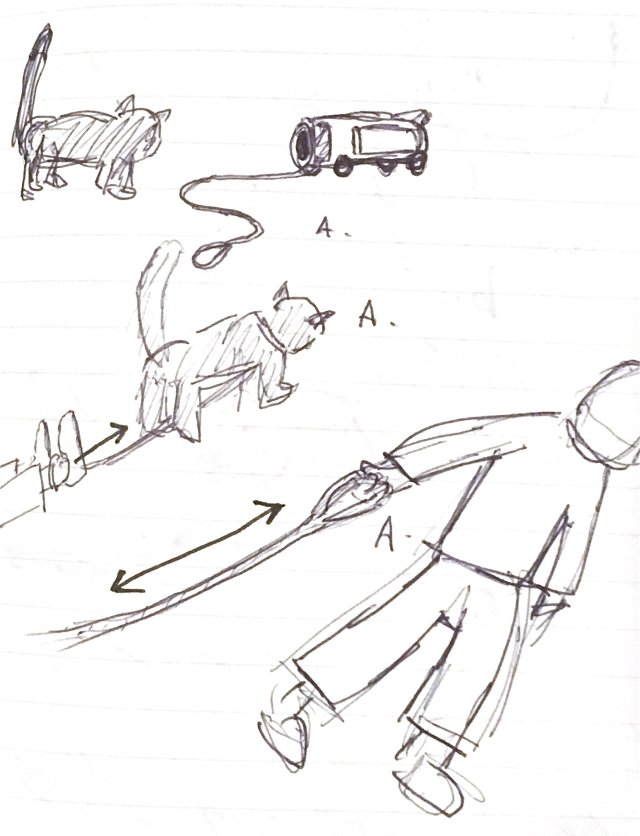 A.
A.
A.